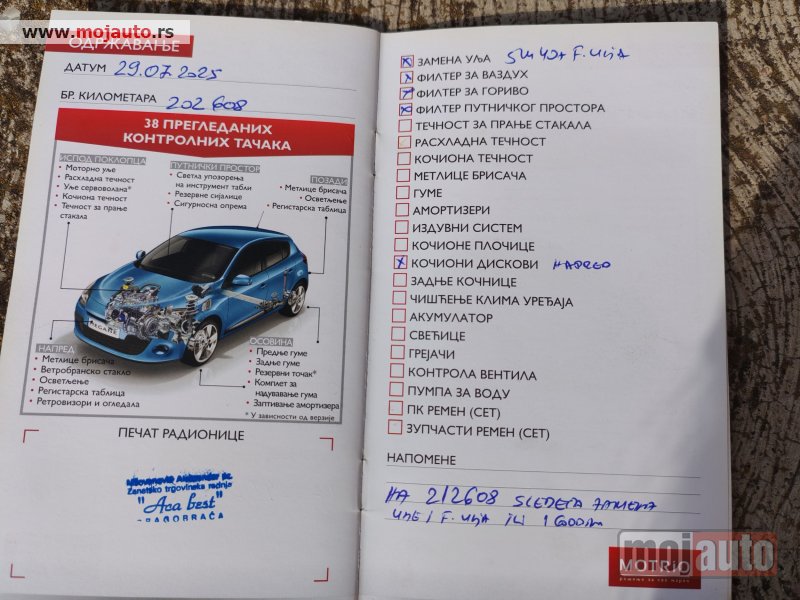 www.mojauto.rs
ОДРЖАВАЊЕ
ДАТУМ 29.07.2025
БР. КИЛОМЕТАРА 202 608
38 ПРЕГЛЕДАНИХ
КОНТРОЛНИХ ТАЧАКА
ИСПОД ПОКЛОПЦА
• Моторно уље
• Расхладна течност
• Уље сервоволана*
• Кочиона течност
• Течност за прање
стакала
ПУТНИЧКИ ПРОСТОР
• Светла упозорења
на инструмент табли
• Резервне сијалице
• Сигурносна опрема
ПОЗАДИ
• Метлице брисача
• Осветљење
• Регистарска таблица
MEGANE
НАПРЕД
• Метлице брисача
• Ветробранско стакло
• Осветљење
• Регистарска таблица
• Ретровизори и огледала
ОСОВИНА
• Предње гуме
• Задње гуме
• Резервни точак*
• Комплет за
надувавање гума
• Заптивање амортизера
* У зависности од верзије
ПЕЧАТ РАДИОНИЦЕ
Zanatsko trgovinska radnja
"Aca best"
DRAGOBRAĆA
ЗАМЕНА УЉА 5W40+ F. ulja
ФИЛТЕР ЗА ВАЗДУХ
ФИЛТЕР ЗА ГОРИВО
ФИЛТЕР ПУТНИЧКОГ ПРОСТОРА
ТЕЧНОСТ ЗА ПРАЊЕ СТАКАЛА
РАСХЛАДНА ТЕЧНОСТ
КОЧИОНА ТЕЧНОСТ
МЕТЛИЦЕ БРИСАЧА
ГУМЕ
АМОРТИЗЕРИ
ИЗДУВНИ СИСТЕМ
КОЧИОНЕ ПЛОЧИЦЕ
КОЧИОНИ ДИСКОВИ
ЗАДЊЕ КОЧНИЦЕ
ЧИШЋЕЊЕ КЛИМА УРЕЂАЈА
АКУМУЛАТОР
СВЕЋИЦЕ
ГРЕЈАЧИ
КОНТРОЛА ВЕНТИЛА
ПУМПА ЗА ВОДУ
ПК РЕМЕН (СЕТ)
ЗУПЧАСТИ РЕМЕН (СЕТ)
НАПОМЕНЕ
NA 212608 SLEDEĆA ZAMENA
ULJE I F. ulja ili 1 GODINA
mojauto
MOTRIO
решење за све марке